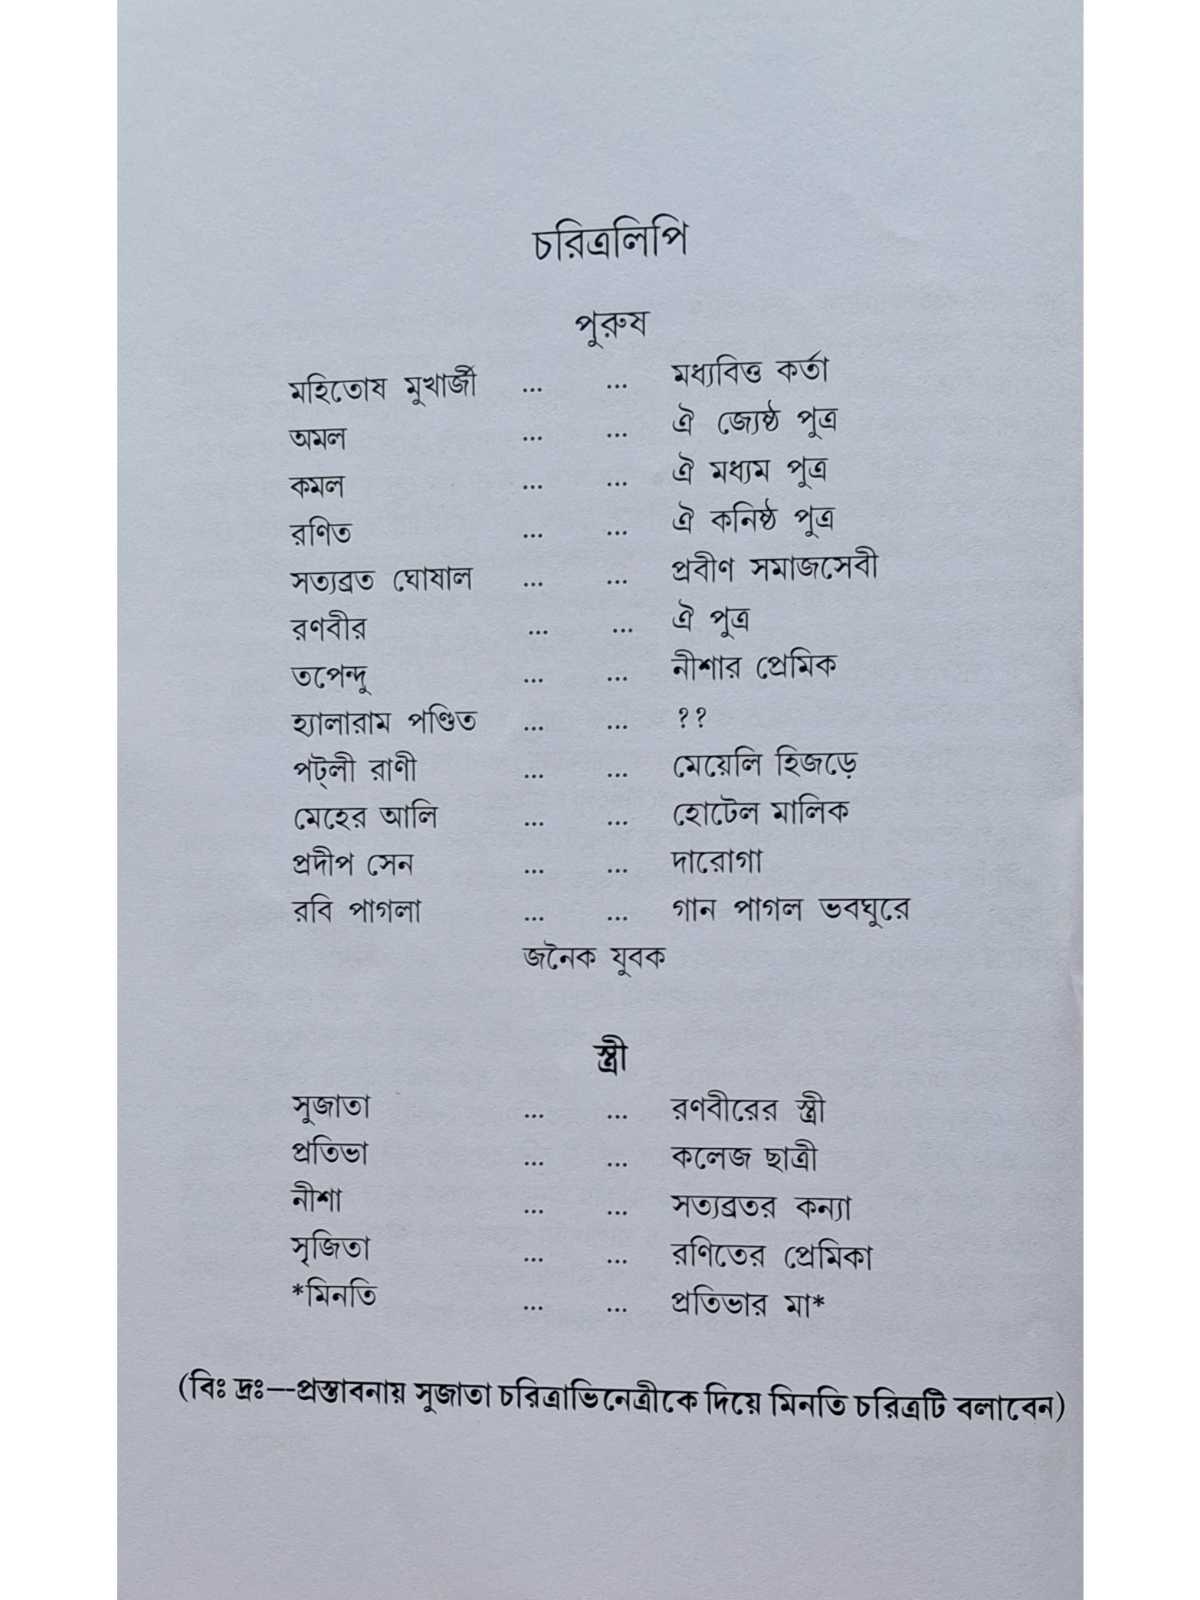 চরিত্রলিপি
পুরুষ
মহিতোষ মুখার্জী ... ... মধ্যবিত্ত কর্তা
অমল ... ... ঐ জ্যেষ্ঠ পুত্র
কমল ... ... ঐ মধ্যম পুত্র
রণিত ... ... ঐ কনিষ্ঠ পুত্র
সত্যব্রত ঘোষাল ... ... প্রবীণ সমাজসেবী
রণবীর ... ... ঐ পুত্র
তপেন্দু ... ... নীশার প্রেমিক
হ্যালারাম পণ্ডিত ... ... ??
পট্‌লী রাণী ... ... মেয়েলি হিজড়ে
মেহের আলি ... ... হোটেল মালিক
প্রদীপ সেন ... ... দারোগা
রবি পাগলা ... ... গান পাগল ভবঘুরে
জনৈক যুবক
স্ত্রী
সুজাতা ... ... রণবীরের স্ত্রী
প্রতিভা ... ... কলেজ ছাত্রী
নীশা ... ... সত্যব্রতর কন্যা
সৃজিতা ... ... রণিতের প্রেমিকা
*মিনতি ... ... প্রতিভার মা*
(বিঃ দ্রঃ--প্রস্তাবনায় সুজাতা চরিত্রাভিনেত্রীকে দিয়ে মিনতি চরিত্রটি বলাবেন)